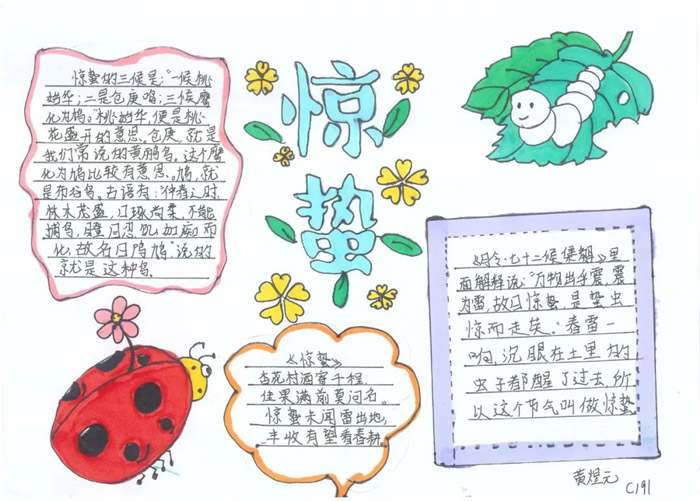 惊蛰
惊蛰的三候是:“一候桃
始华;二是仓庚鸣;三候鹰
化为鸠。”桃始华,便是桃
花盛开的意思。仓庚,就是
我们常说的黄鹂鸟。这个鹰
化为鸠比较有意思。鸠,就
是布谷鸟。古语有:“仲春之时
林木茂盛,口啄尚柔,不能
捕鸟,瞪目忍饥如痴而
化,故名曰鸤鸠”说的
就是这种鸟。
《惊蛰》
杏花村酒寄千程,
佳果满前莫问名。
惊蛰未闻雷出地,
丰收有望看春耕。
《月令·七十二候集解》里
面解释说:“万物出乎震,震
为雷,故曰惊蛰,是蛰虫
惊而走矣。”春雷一
响,沉眠在土里的
虫子都醒了过去,所
以这个节气叫做惊蛰
黄煜元
C191